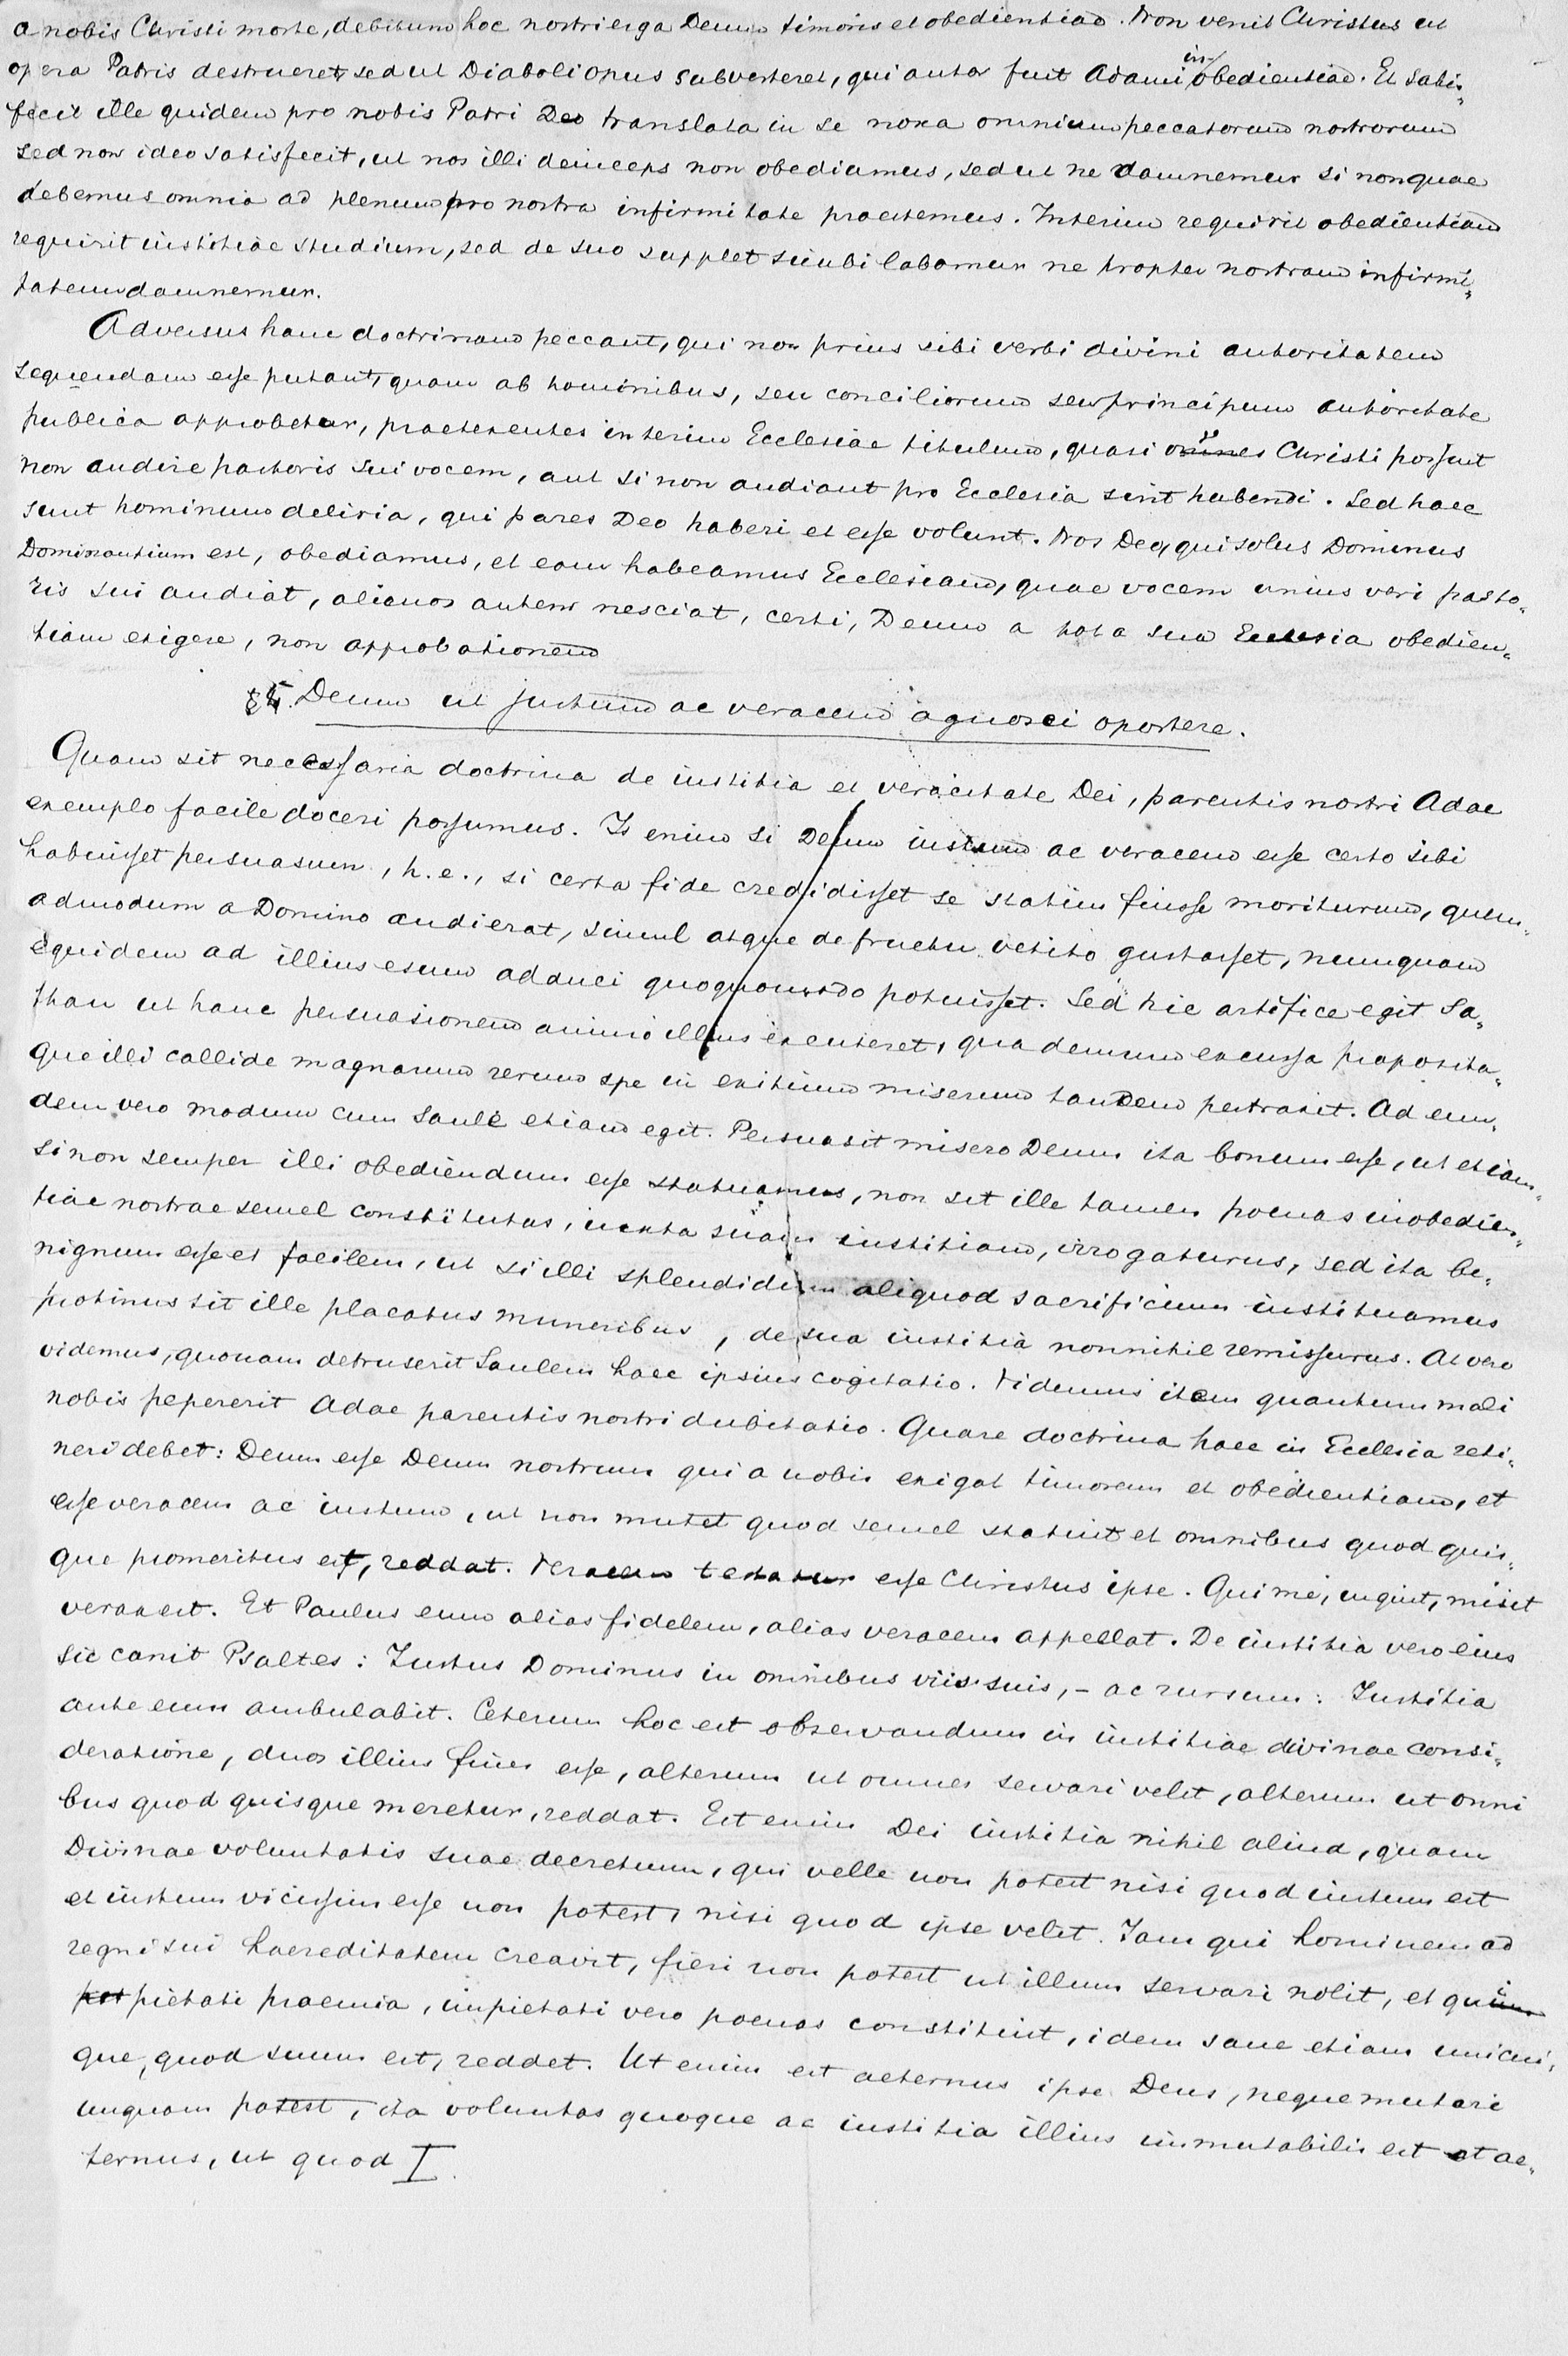 a nobis Christi morte, debitum hoc nostri erga Deum timoris et obedientiae. Non venit Christus ut
opera Patris destrueret, sed ut Diaboli opus subverteret, qui autor fuit Adami inobedientiae. Et satis-
fecit ille quidem pro nobis Patri Deo translata in se noxa omnium peccatorum nostrorum
sed non ideo satisfecit, ut nos illi deinceps non obediamus, sed ut ne damnemur si non quae
debemus omnia ad plenum pro nostra infirmitate praestemus. Interim requirit obedientiam
requirit iustitiae studium, sed de suo supplet sicubi labamur ne propter nostram infirmi-
tatem damnemur.
Adversus hanc doctrinam peccant, qui non prius sibi verbi divini autoritatem
sequendam esse putant, quam ab hominibus, seu conciliorum seu principum autoritate
publica approbetur, praetexentes interim Ecclesiae titulum, quasi oves Christi possint
non audire pastoris sui vocem, aut si non audiant pro Ecclesia sint habendi. Sed haec
sunt hominum deliria, qui pares Deo haberi et esse volunt. Nos Deo, qui solus Dominus
Dominantium est, obediamus, et eam habeamus Ecclesiam, quae vocem unius veri pasto-
ris sui audiat, alienos autem nesciat, certi, Deum a tota sua Ecclesia obedien-
tiam exigere, non approbationem
Deum ut justum ac veracem agnosci oportere.
Quam sit necessaria doctrina de iustitia et veracitate Dei, parentis nostri Adae
exemplo facile doceri possumus. Is enim si Deum iustum ac veracem esse certo sibi
habuisset persuasum, h.e., si certa fide credidisset se statim fuisse moriturum, quem-
admodum a Domino audierat, simul atque de fructu vetito gustasset, nunquam
equidem ad illius esum adduci quoquomodo potuisset. Sed hic artifice egit Sa-
than ut hanc persuasionem animo illius excuteret, qua demum excussa proposita-
que illi callide magnarum rerum spe in exitium miserum tandem pertraxit. Ad eun-
dem vero modum cum Saule etiam egit. Persuasit misero Deum ita bonum esse, ut etiam-
si non semper illi obediendum esse statuamus, non sit ille tamen poenas inobedien-
tiae nostrae semel constitutas, iuxta suam iustitiam, irrogaturus, sed ita be-
nignum esse et facilem, ut si illi splendidum aliquod sacrificium instituamus
protinus sit ille placatus muneribus, de sua iustitia nonnihil remissurus. At vero
videmus, quonam detruserit Saulem haec ipsius cogitatio. Videmus item quantum mali
nobis pepererit Adae parentis nostri dubitatio. Quare doctrina haec in Ecclesia reti-
neri debet: Deum esse Deum nostrum qui a nobis exigat timorem et obedientiam, et
esse veracem ac iustum, ut non mutet quod semel statuit et omnibus quod quis-
que promeritus est, reddat. Veracem testatur esse Christus ipse. Qui me, inquit, misit
verax est. Et Paulus eum alias fidelem, alias veracem appellat. De iustitia vero eius
sic canit Psaltes: Iustus Dominus in omnibus viis suis, - ac rursum: Iustitia
ante eum ambulabit. Ceterum hoc est observandum in iustitiae divinae consi-
deratione, duos illius fines esse, alterum ut omnes servari velit, alterum ut omni
bus quod quisque meretur, reddat. Est enim Dei iustitia nihil aliud, quam
Divinae voluntatis suae decretum, qui velle non potest nisi quod iustum est
et iustum vicissim esse non potest, nisi quod ipse velit. Iam qui hominem ad
regni sui haereditatem creavit, fieri non potest ut illum servari nolit, et qui
pietati praemia, impietati vero poenas constituit, idem sane etiam unicui-
que, quod suum est, reddet. Ut enim est aeternus ipse Deus, neque mutari
unquam potest, ita voluntas quoque ac iustitia illius immutabilis est et ae-
ternus, ut quod I.